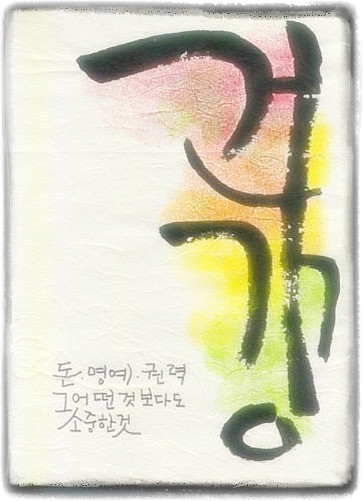 건강
돈·명예·권력
그 어떤 것 보다도
소중한 것